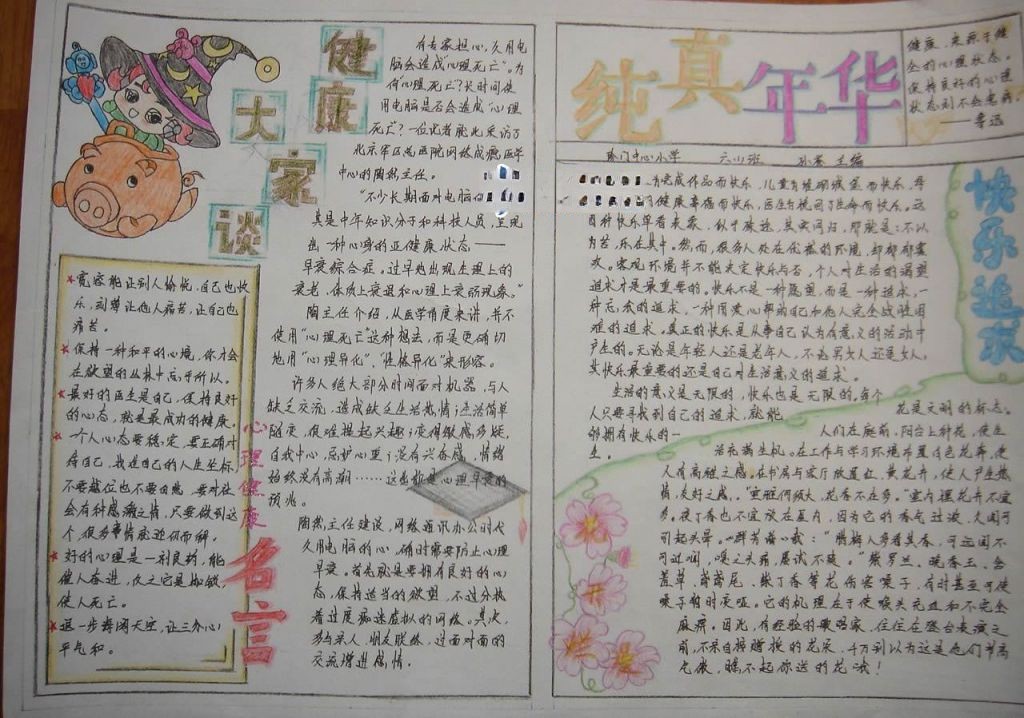 健康
大家谈
有专家担心,久用电
脑会造成“心理死亡”。为
何“心理死亡”?长时间使
用电脑是否会造成“心理
死亡”?一位记者就此采访了
北京军区总医院网络成瘾医学
中心的陶然主任。
“不少长期面对电脑的
其是中年知识分子和科技人员,呈现
出一种心身的亚健康状态——
早衰综合症。过早地出现生理上的
衰老,体质上衰退和心理上衰弱现象。”
陶主任介绍,从医学角度来讲,并不
使用“心理死亡”这种想法,而是更确切
地用“心理异化”、“性格异化”来形容。
许多人绝大部分时间面对机器,与人
缺乏交流,造成缺乏生活热情;生活简单
随便,很难提起兴趣;变得敏感多疑,
自我中心,庇护心重;没有兴奋感,情绪
始终没有高潮……这也都是心理早衰的
预兆。
陶然主任建议,网络通讯办公时代
久用电脑的心,确时需要防止心理
早衰。首先就是要拥有良好的心
态,保持适当的欲望,不过分执
着过度痴迷虚拟的网络。其次,
多与亲人、朋友联络,过面对面的
交流增进感情。
★宽容能让别人愉悦,自己也快
乐,刻薄让他人痛苦,让自己也
痛苦。
★保持一种和平的心境,你才会
在欲望的丛林中忘乎所以。
★最好的医生是自己,保持良好
的心态,就是最成功的健康。
★一个人心态要稳定,要正确对
待自己,找准自己的人生坐标,
不要越位也不要自卑,要对社
会有种感激之情,只要做到这
个,很多事情就迎刃而解。
★好的心理是一剂良药,能
催人奋进,反之它是枷锁,
使人死亡。
★退一步海阔天空,让三分心
平气和。
心理健康
名言
纯真年华
健康,来源于健
全的心理状态。
保持良好的心理
状态则不会患病。
——鲁迅
中心小学 六(1)班 主编
快乐追求
为完成作品而快乐,儿童为堆砌城堡而快乐,母
的健康幸福而快乐,医生为挽回了生命而快乐。这
四种快乐单看来最,似乎旅途,其实同归,那就是:不以
为苦,乐在其中。然而,很多人处在优裕的环境,却郁郁寡
欢。客观环境并不能决定快乐与否,个人对生活的渴望
追求才是最重要的。快乐不是一种愿望,而是一种追求,一
种忘我的追求,一种用爱心帮助自己和他人完全战胜困
难的追求。真正的快乐是从事自己认为有意义的活动中
产生的。无论是年轻人还是老年人,不论男人还是女人,
其快乐最重要的还是自己对生活意义的追求。
生活的意义是无限的,快乐也是无限的,每个
人只要寻找到自己的追求,就能
够拥有快乐的一
花是文明的标志。
人们在庭前、阳台上种花,使生
活充满生机。在工作与学习环境布置白色花卉,使
人有高雅之感。在书房与客厅放置红、黄花卉,使人产生热
情、友好之感。“室雅何须大,花香不在多。”室内摆花卉不宜
多。夜丁香也不宜放在室内,因为它的香气过浓,久闻可
引起头晕。《群芳谱》载:“腊梅人多看其香,可远闻不
可近闻,嗅之头痛,屡试不疑。”紫罗兰、晚香玉、金
盏草、鸢鸢尾、紫丁香等花伤害嗓子,有时甚至可使
嗓子暂时变哑。它的机理在于使喉头充血和不完全
麻痹。因此,有经验的歌唱家,往往在登台表演之
前,不亲自接赠族的花束,千万别以为这是他们节高
气傲,瞧不起你送的花哦!